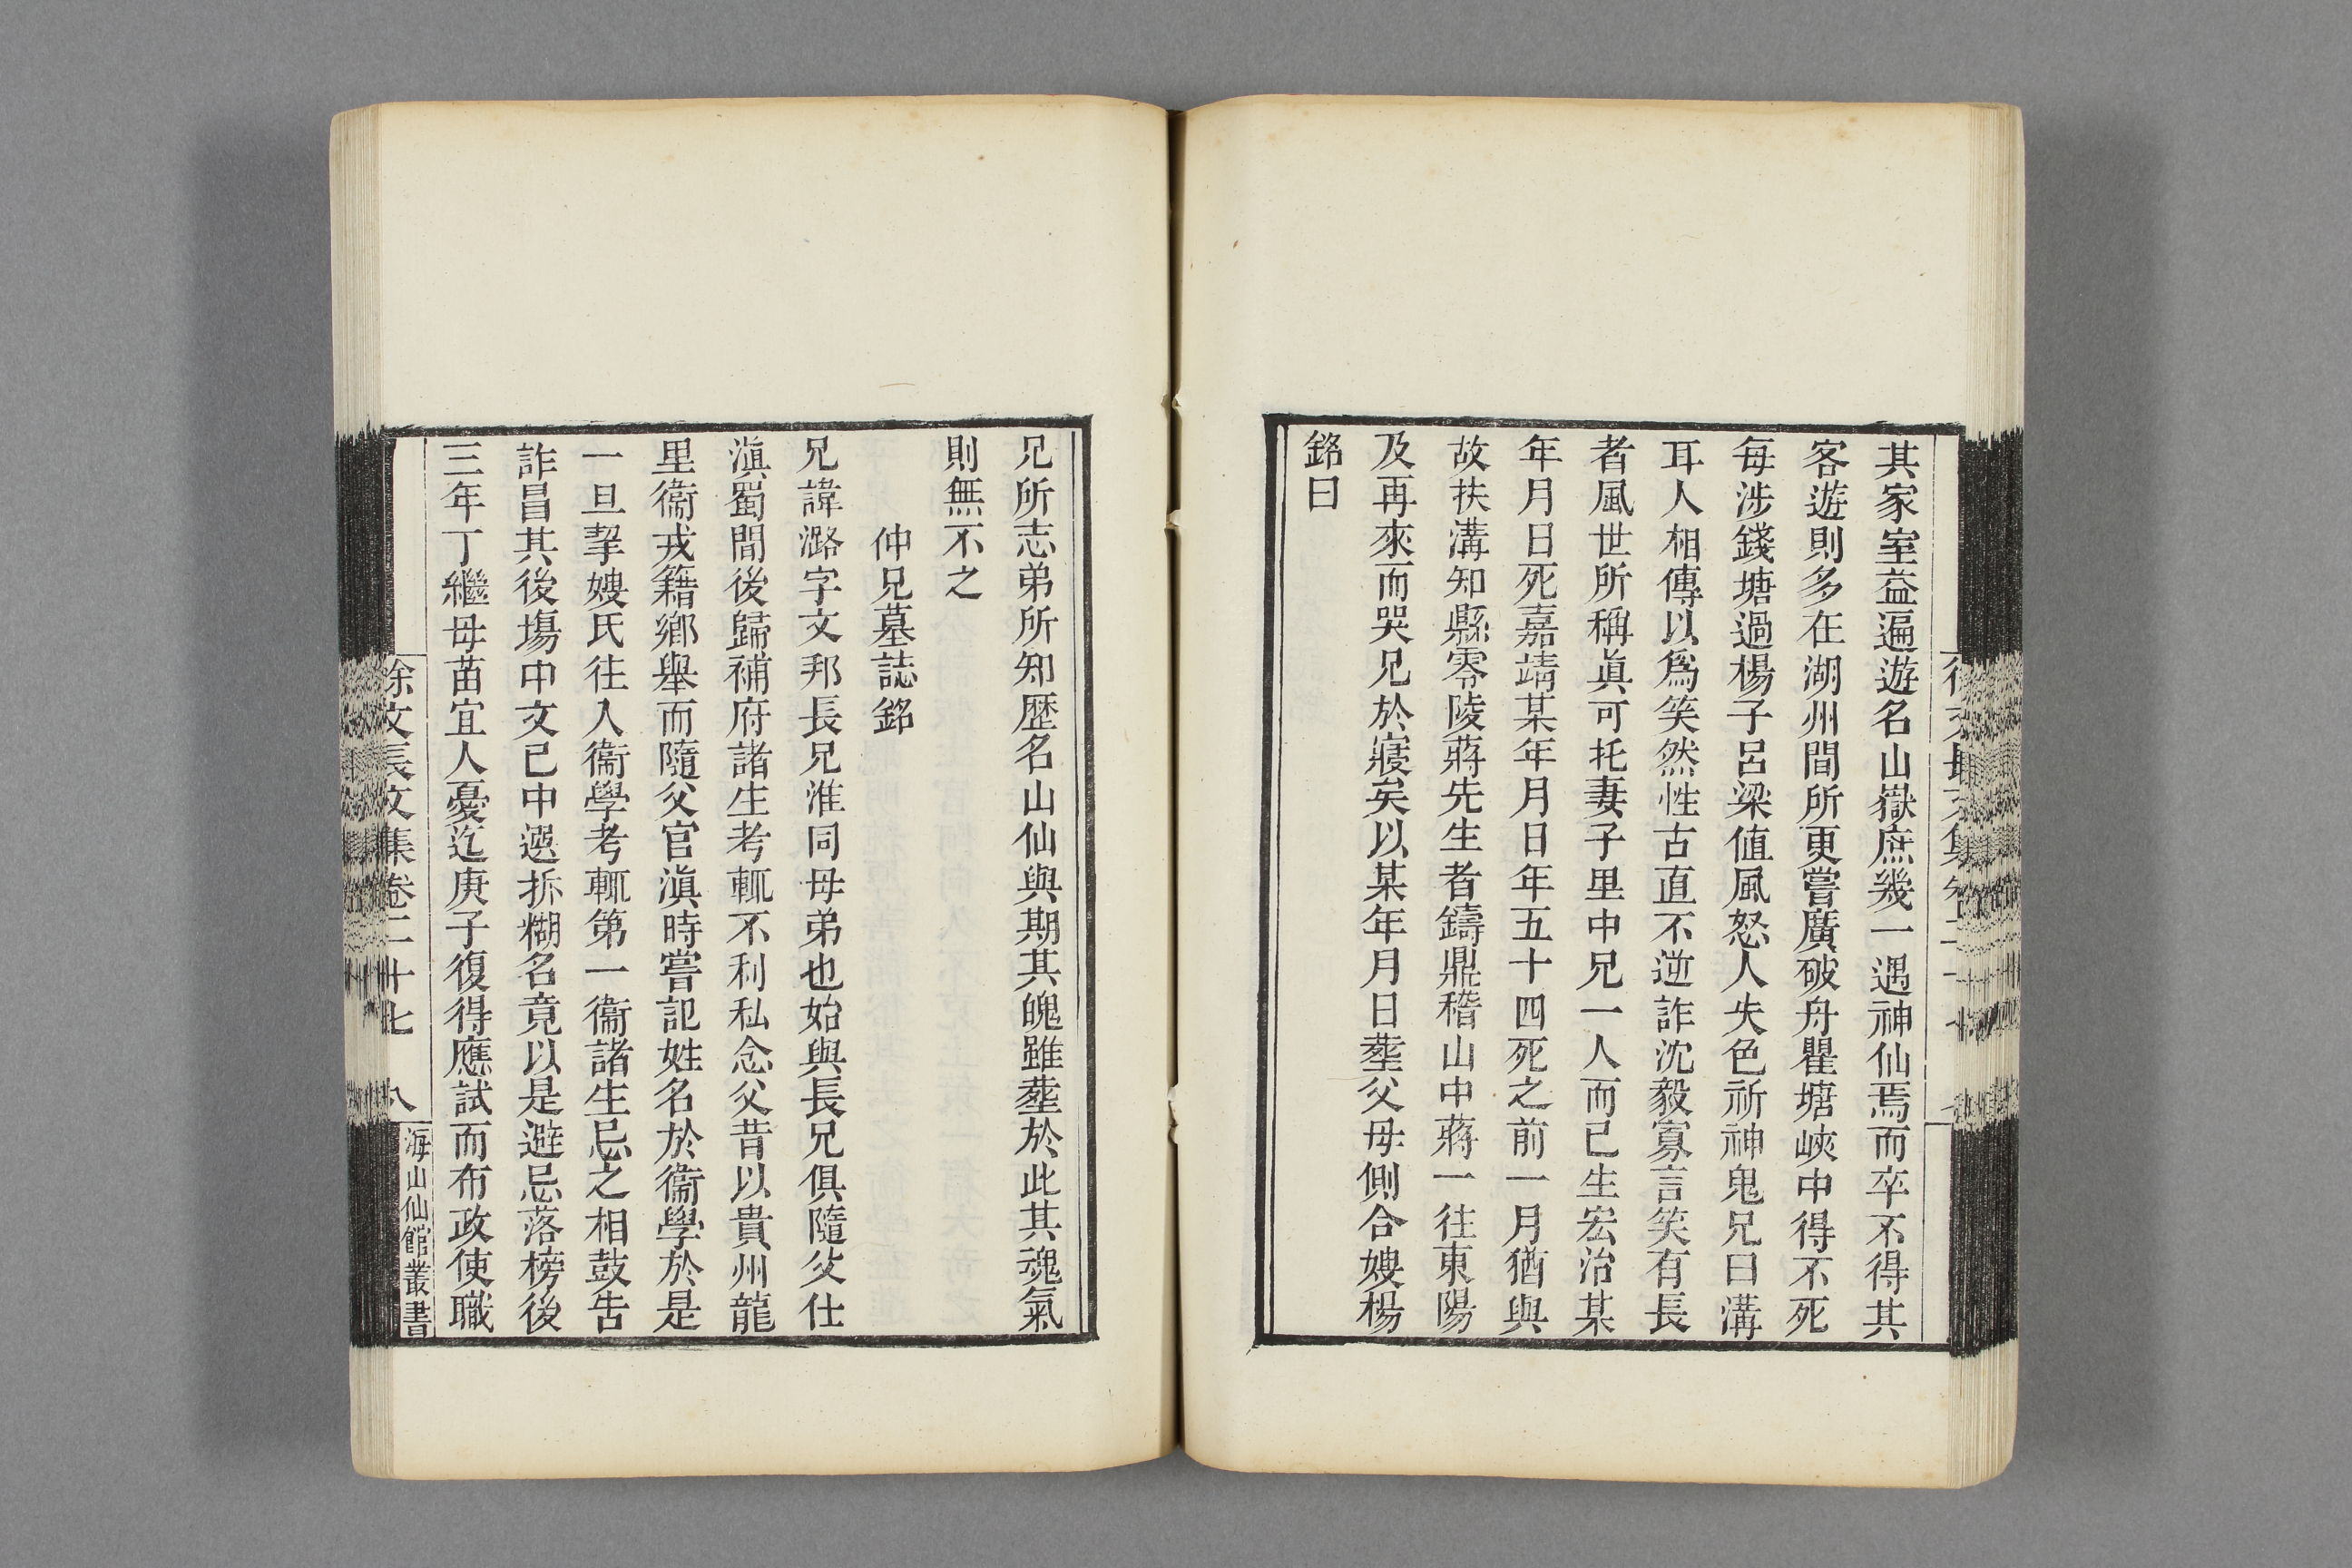 其家室益遍遊名山嶽庶幾一遇神仙焉而卒不得其
客遊則多在湖州間所更嘗廣破舟瞿塘峽中得不死
每涉錢塘過楊子呂梁值風怒人失色祈神鬼兄曰溝
耳人相傳以爲笑然性古直不逆詐沈毅寡言笑有長
者風世所稱眞可托妻子里中兄一人而已生宏治某
年月日死嘉靖某年月日年五十四死之前一月猶與
故扶溝知縣零陵蔣先生者鑄鼎稽山中蔣一往東陽
及再來而哭兄於寢矣以某年月日塟父母側合嫂楊
銘曰
兄所志弟所知歷名山仙與期其魄雖塟於此其魂氣
則無不之
仲兄墓誌銘
兄諱潞字文邦長兄淮同母弟也始與長兄俱隨父仕
滇蜀間後歸補府諸生考輒不利私念父昔以貴州龍
里衞戎籍鄉舉而隨父官滇時嘗記姓名於衞學於是
一旦挈嫂氏往入衞學考輒第一衞諸生忌之相鼓吿
詐昌其後塲中文已中選拆糊名竟以是避忌落榜後
三年丁繼母苗宜人憂迄庚子復得應試而布政使職
徐文長文集卷二十七 八
海山仙館叢書